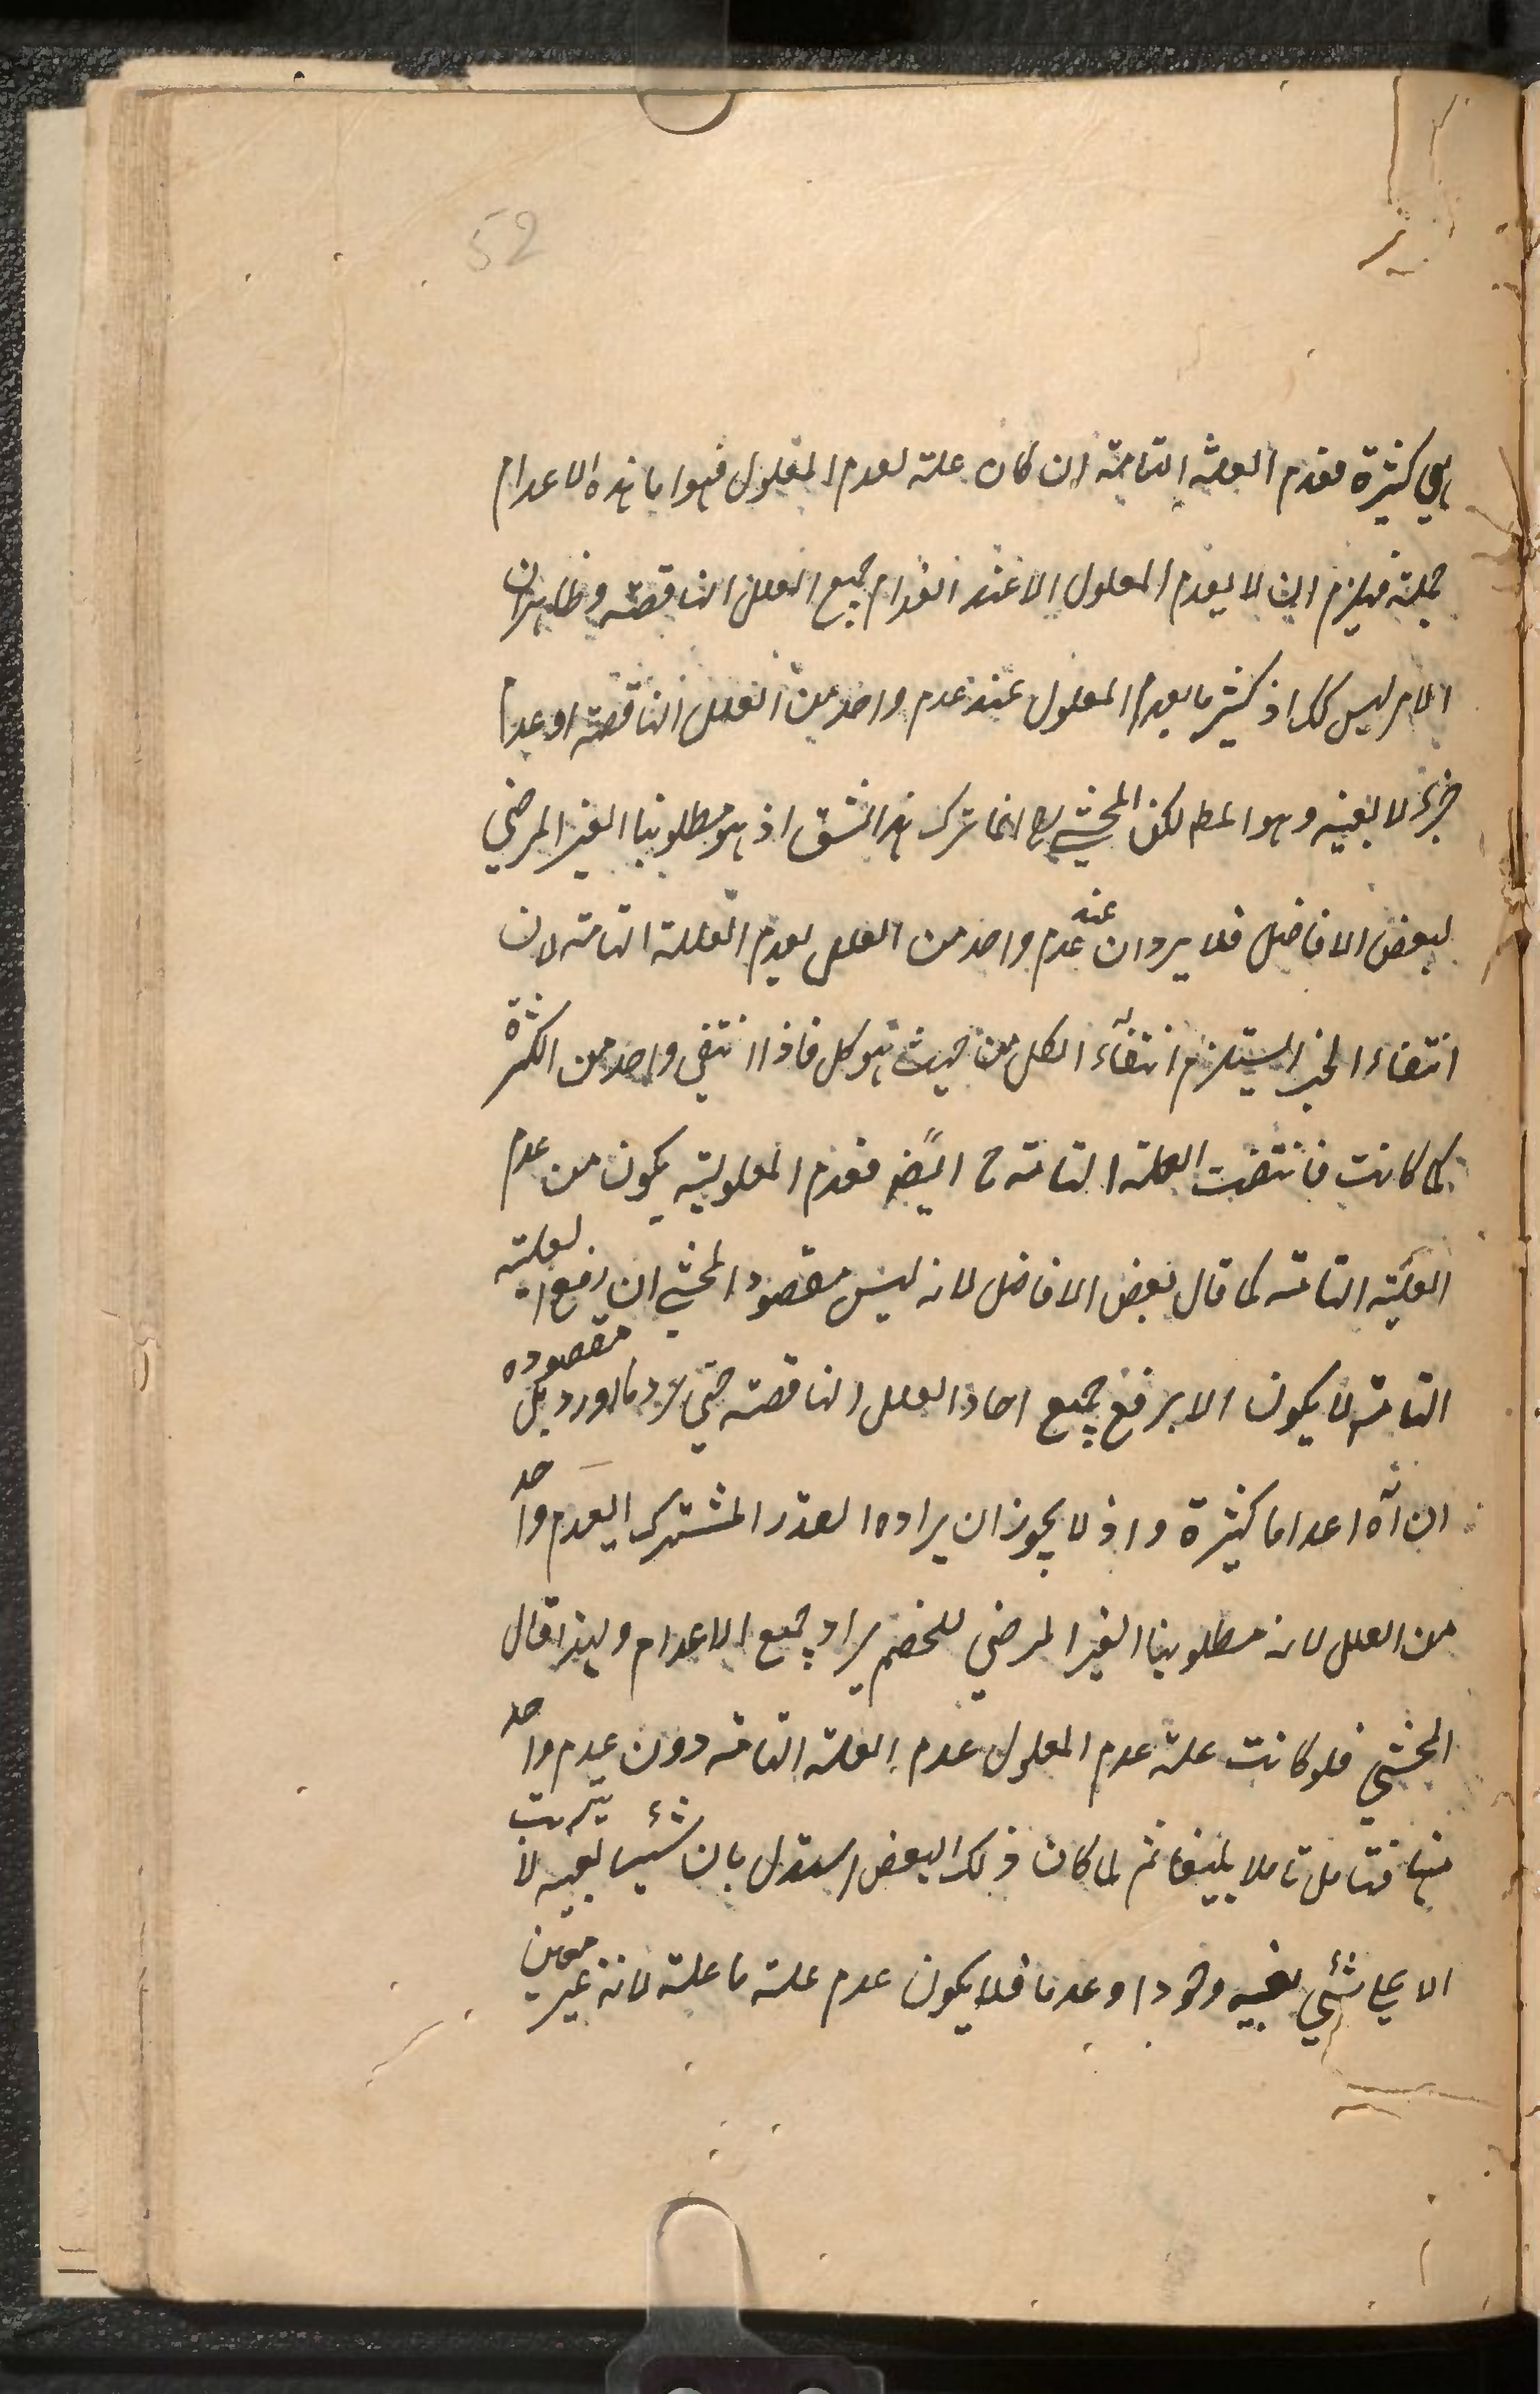 52
هي كثيرة فعدم العلة التامة ان كان علة لعدم المعلول فهو اما هذه الاعدام
جملة فيلزم ان لا يعدم المعلول الا عند انعدام جميع العلل الناقصة وظاهر ان
الامر ليس كك اذ كثير ما يعدم المعلول عند عدم واحد من العلل الناقصة او عدم
جزء لا بعينه وهو المط لكن المحشي انما ترك هذا الشق اذ هو مطلوبنا الغير المرضي
لبعض الافاضل فلا يرد ان عند عدم واحد من العلل يعدم العلة التامة لان
انتفاء الجزء يستلزم انتفاء الكل من حيث هو كل فاذا انتفى واحد من الكثرة
كما كانت فانتفت العلة التامة ح ايضا فعدم المعلولية يكون من عدم
العلة التامة كما قال بعض الافاضل لانه ليس مقصود المحشي ان رفع العلة
التامة لا يكون الا برفع جميع احاد العلل الناقصة حتى يرد ما اورد بل مقصوده
ان له اعداما كثيرة واذ لا يجوز ان يراد القدر المشترك اي عدم واحد
من العلل لانه مطلوبنا الغير المرضي للخصم يراد جميع الاعدام ولهذا قال
المحشي فلو كانت علة عدم المعلول عدم العلة التامة دون عدم واحد
منها فتامل تاملا بليغا ثم لما كان ذلك البعض استدل بان شيئا بعينه لا يترتب
الا على شيء بعينه وجودا وعدما فلا يكون عدم علة ما علة لانه غير معين